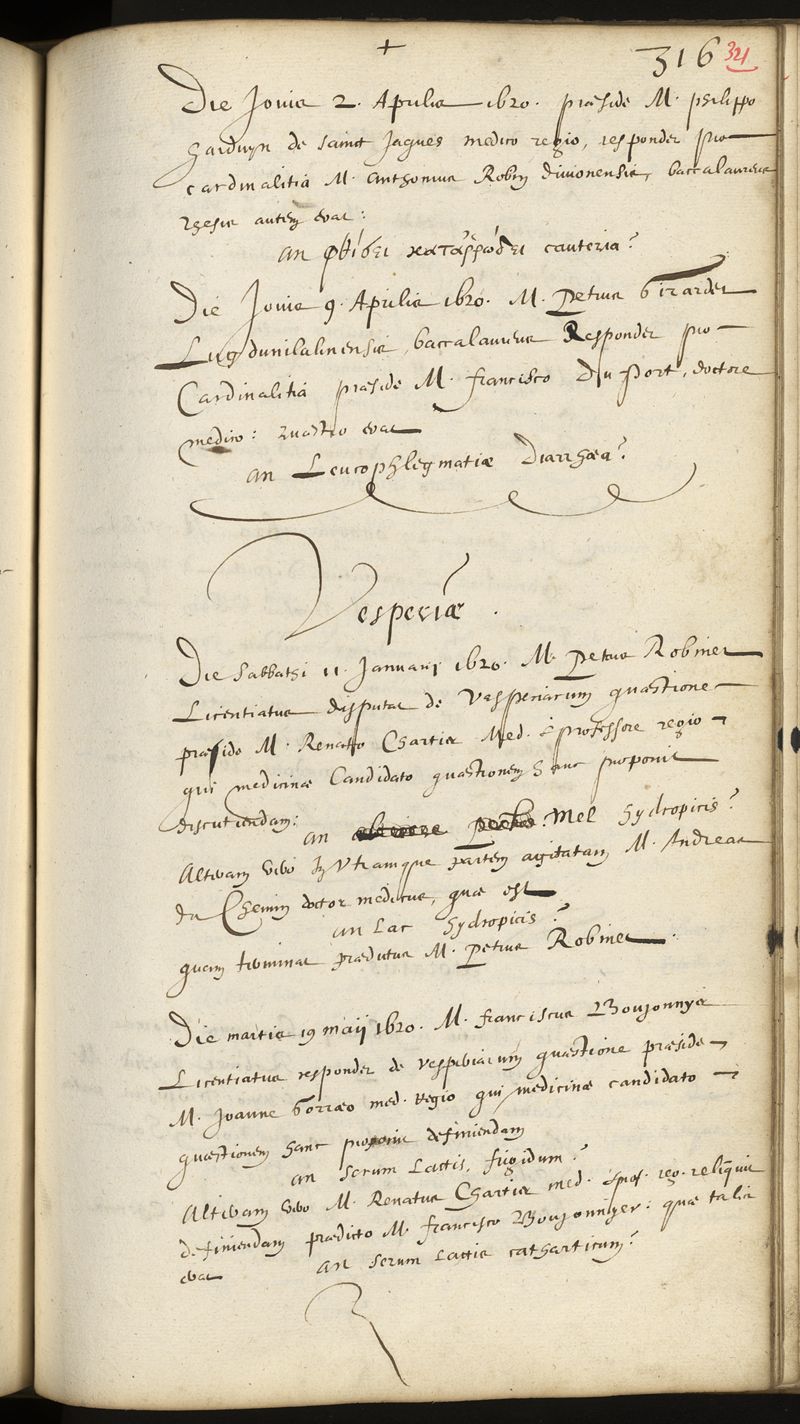 +
316 321
Die Jovis 2. Aprilis 1620. præside M. Philippo
Harduyn de sainct Jaques medico regio, respondet pro
cardinalitia M. Anthonius Robin divionensis, baccalaureus
Thesis autem erat:
An φθίσει καταρρώδει cauteria?
Die Jovis 9. Aprilis 1620. M. Petrus Girardet
Lugdunilalinensis, baccalaureus Respondet pro
Cardinalitia præside M. francisco Du Port, doctore
medico: quæstio erat
An Leucophlegmatiæ Diarrhæa?
Vesperiæ.
Die Sabbathi 11. Januarij 1620. M. Petrus Robinet
Licentiatus disputat de Vesperiarum quæstione
præside M. Renato Chartier Med. & professore regio
qui medicinæ Candidato quæstionem hanc proponit
discutiendam:
An Mel hydropicis?
Alteram vero In Utramque partem agitatam M. Andreas
du Chemin doctor medicus, quæ est
An Lac hydropicis?
quam terminat prædictus M. Petrus Robinet.
Die martis 19 maij 1620. M. franciscus Boujonnyer
Licentiatus respondet de vesperiarum quæstione præside
M. Joanne Gorræo med. regio qui medicinæ candidato
quæstionem hanc proponit definiendam
An serum Lactis, frigidum?
Alteram vero M. Renatus Chartier med. & prof. reg. reliquit
definiendam prædicto M. francisco Boujonnyer: quæ talis
erat An serum Lactis catharticum?